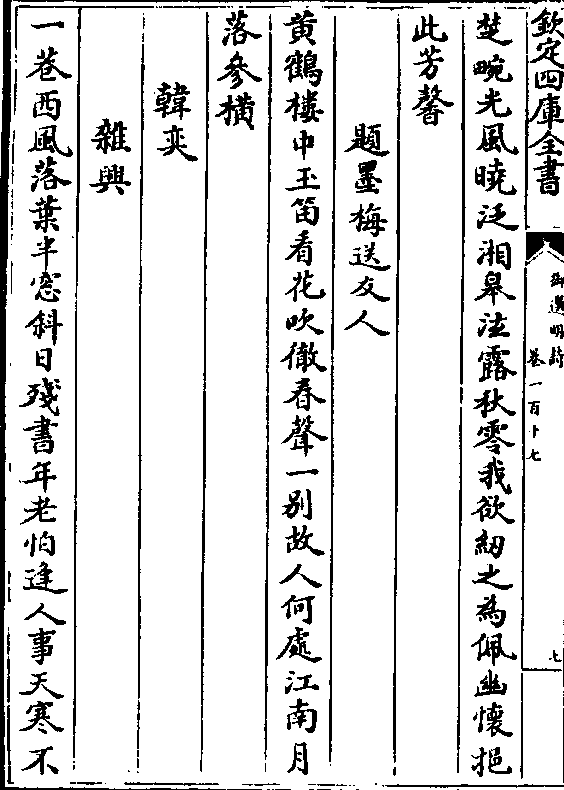 欽定四庫全書
御選明詩
卷一百十七
七
楚畹光風曉泛湘臯泣露秋零我欲紉之為佩幽懷挹
此芳馨
題墨梅送友人
黄鶴樓中玉笛看花吹徹春聲一別故人何處江南月
落參橫
韓奕
雜興
一巷西風落葉半窓斜日殘書年老怕逢人事天寒不